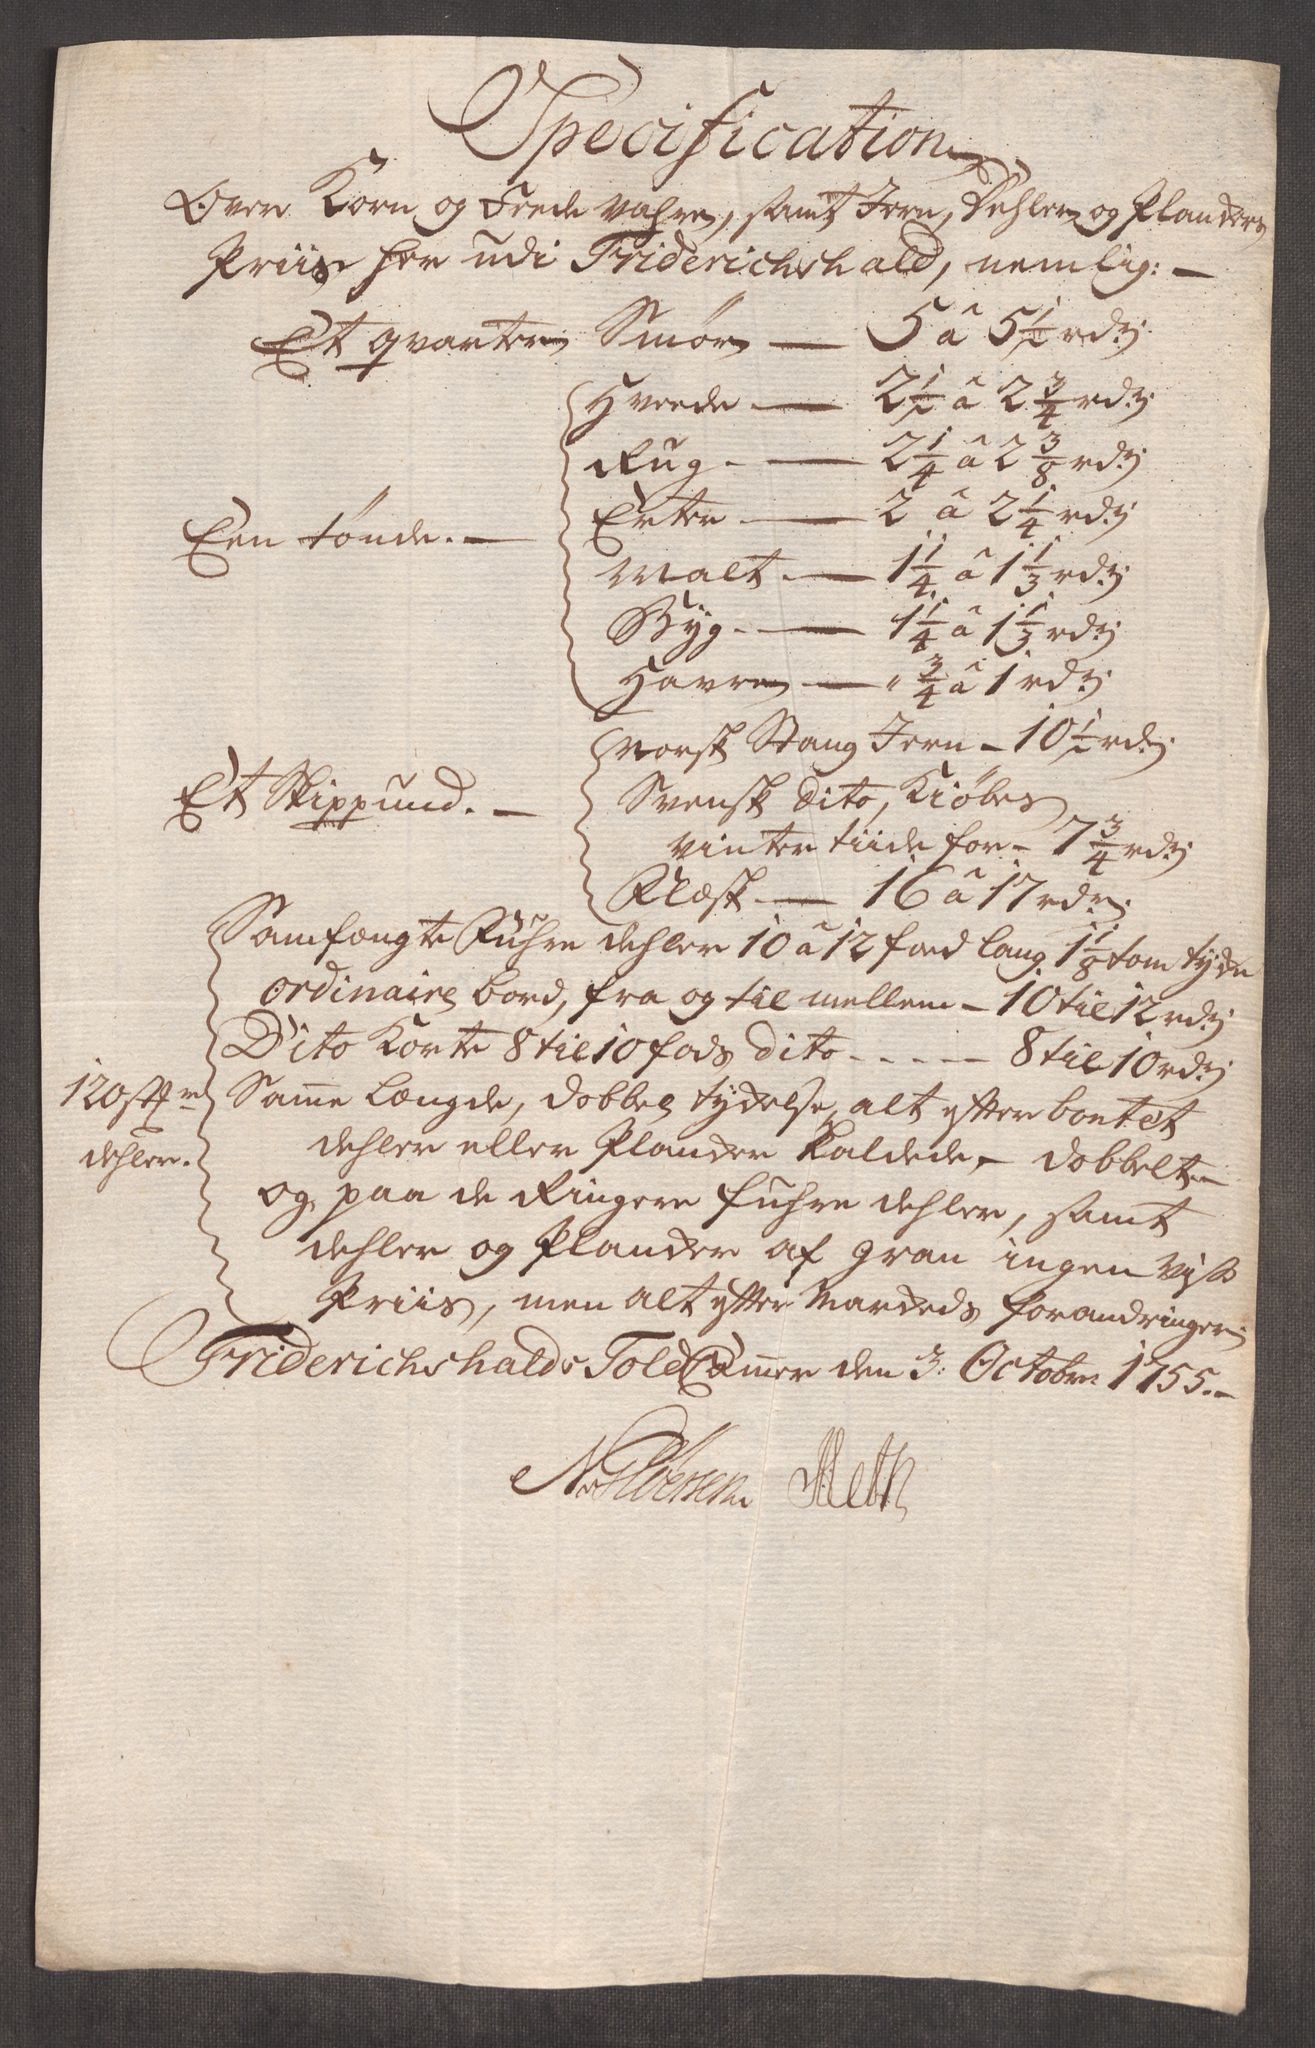 Specification
Over Korn og Feede vahre, samt Jern, Dehler og Plancker
Priis her udi Friderichshald, nemlig: —
Et qvarter Smør — 5 â 5 1/2 rdr:
Hveede — 2 1/2 â 2 3/4 rdr:
Rug — 2 1/4 â 2 3/8 rdr:
Erter — 2 â 2 1/4 rdr:
Een tønde. — Malt — 1 1/4 â 1 1/3 rdr:
Byg — 1 1/4 â 1 1/3 rdr:
Havre — " 3/4 â 1 rdr:
Norsk Stang Jern — 10 1/2 rdr:
Et Skippund. — Svensk dito, Kiøbes
vinter tiide for — 7 3/4 rdr:
Flæsk — 16 â 17 rdr:
Samfængte Fuhre dehler 10 â 12 foed lang 1 1/8 tom tyke
ordinaire bord, fra og til mellem — 10 til 12 rdr:
Dito Korte 8 til 10 fods dito - - - - — 8 til 10 rdr:
120 st Samme Længde, dobbel tykelse, alt efter bontet
dehler. dehler eller Plancker Kaldede, — dobbelt —
og paa de Ringere fuhre dehler, samt
dehler og Plancker af gran ingen viss
Priis, men alt efter Marckeds forandringer
Friderichshalds Told Cammer den 3: Octobr: 1755. —